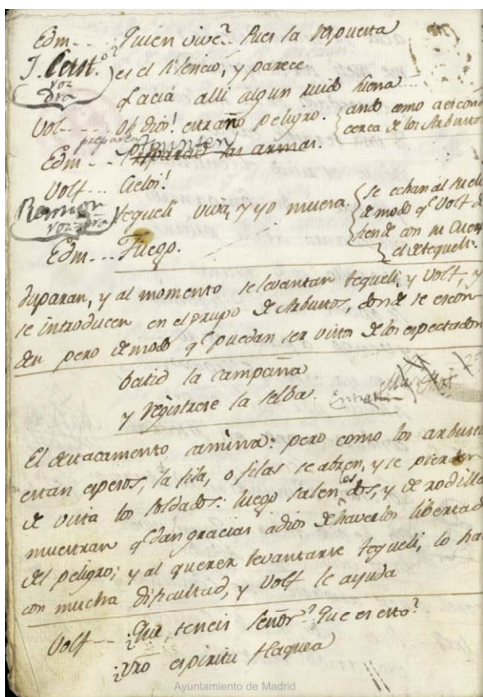 Edm... ¿Quien vive? Pues la respuesta
es el silencio, y parece
J. Cast.º
voz
dra
q.e acia alli algun ruido suena
Volf... Oh dios! estraño peligro.
ando como a escond
cerca de los Arbustos
preparad
Edm... apunten
Preparad las armas.
Volf... Cielos!
tequeli viva, y yo muera.
Ramon
voz dra
se echan al suelo
de modo q.e Volf de
fiende con su Cuerpo
el de tequeli.
Edm... Fuego.
disparan, y al momento se levantan tequeli, y Volf, y
se introducen en el grupo de Arbustos, donde se escon
den pero de modo q.e puedan ser vistos de los espectadores
batid la campaña
y registrese la selba.
El destacamento camina: pero como los arbustos
están espesos, la fila, o filas se abren, y se pierden
de vista los soldados: luego salen los dos, y de rodillas
muestran q.e dan gracias a dios de haverlos libertad
del peligro; y al querer levantarse tequeli, lo hace
con mucha dificultad, y Volf le ayuda
Volf... ¿Que teneis señor? ¿Que es esto?
¿Vro espiritu flaquea
Ayuntamiento de Madrid